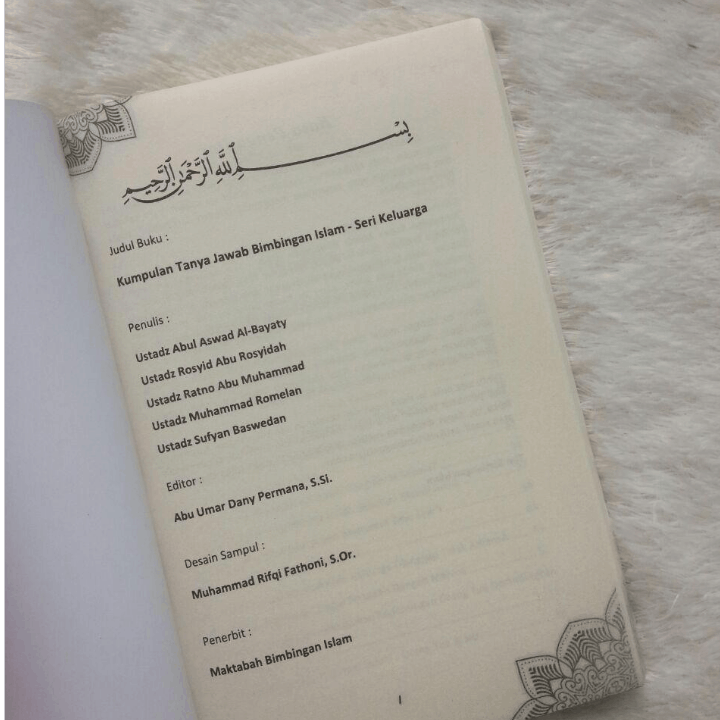 بِسْمِ اللَّهِ الرَّحْمَٰنِ الرَّحِيمِ
Judul Buku :
Kumpulan Tanya Jawab Bimbingan Islam - Seri Keluarga
Penulis :
Ustadz Abul Aswad Al-Bayaty
Ustadz Rosyid Abu Rosyidah
Ustadz Ratno Abu Muhammad
Ustadz Muhammad Romelan
Ustadz Sufyan Baswedan
Editor :
Abu Umar Dany Permana, S.Si.
Desain Sampul :
Muhammad Rifqi Fathoni, S.Or.
Penerbit :
Maktabah Bimbingan Islam
I